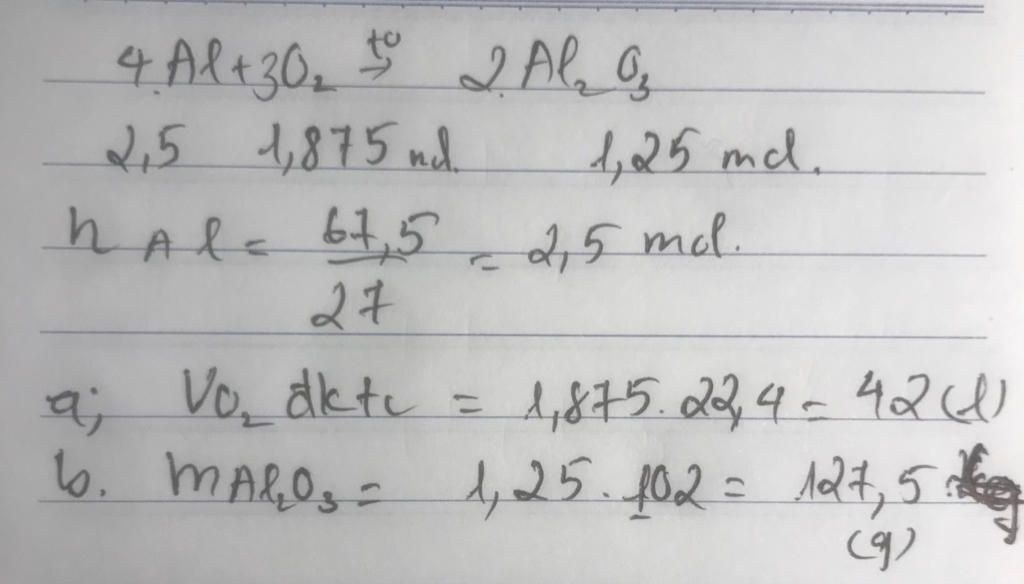 4Al+3O₂ t⁰→ 2Al₂O₃
2,5 1,875 mol. 1,25 mol.
nAl = 67,5/27 = 2,5 mol.
a; VO₂ đktc = 1,875.22,4 = 42(l)
b. mAl₂O₃ = 1,25.102 = 127,5
(g)